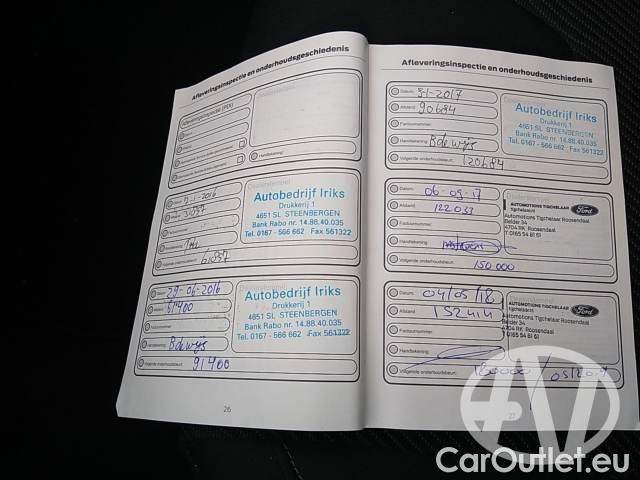 Afleveringsinspectie en onderhoudsgeschiedenis
Afleveringsinspectie (PDI)
Handtekening:
Datum:
-1-2016
Autobedrijf Iriks
Drukkerij 1
4651 SL STEENBERGEN
Bank Rabo nr. 14.88.40.035
Tel. 0167 - 566 662 Fax 561322
Datum: 29-06-2016
61400
Factuurnummer:
Handtekening:
Bdewijs
Volgende onderhoudsbeurt:
91400
Autobedrijf Iriks
Drukkerij 1
4651 SL STEENBERGEN
Bank Rabo nr. 14.88.40.035
Tel. 0167 - 566 662 Fax 561322
26
Afleveringsinspectie en onderhoudsgeschiedenis
Datum: 9-1-2017
Afstand: 90684
Factuurnummer:
Handtekening: Bdewijs
Volgende onderhoudsbeurt: 120684
Autobedrijf Iriks
Drukkerij 1
4651 SL STEENBERGEN
Bank Rabo nr. 14.88.40.035
Tel. 0167 - 566 662 Fax 561322
Datum: 06-09-17
Afstand: 122033
Factuurnummer:
Handtekening:
Volgende onderhoudsbeurt: 150 000
AUTOMOTIONS TIGCHELAAR
tigchelaar.nl
Ford
Automotions Tigchelaar Roosendaal
Belder 34
4704 RK Roosendaal
T 0165 54 81 61
Datum: 04/05/18
Afstand:
Factuurnummer:
Handtekening:
Volgende onderhoudsbeurt:
AUTOMOTIONS TIGCHELAAR
tigchelaar.nl
Ford
Automotions Tigchelaar Roosendaal
Belder 34
4704 RK Roosendaal
T 0165 54 81 61
27
CarOutlet.eu